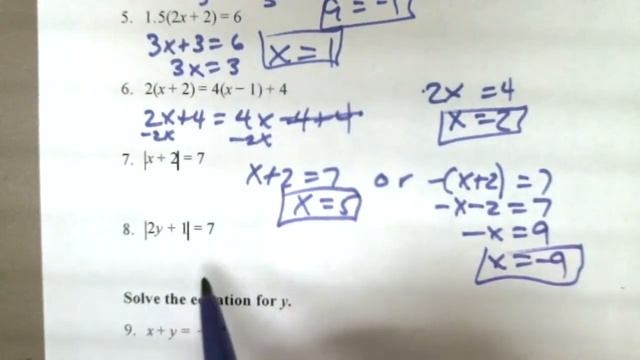 5. 1.5(2x + 2) = 6
3x+3 = 6
3x = 3
x = 1
6. 2(x + 2) = 4(x − 1) + 4
2x+4 = 4x -4+4
-2x -2x
2x = 4
x = 2
7. |x + 2| = 7
x+2 = 7 or -(x+2) = 7
x = 5
-x-2 = 7
-x = 9
x = -9
8. |2y + 1| = 7
Solve the equation for y.
9. x + y =